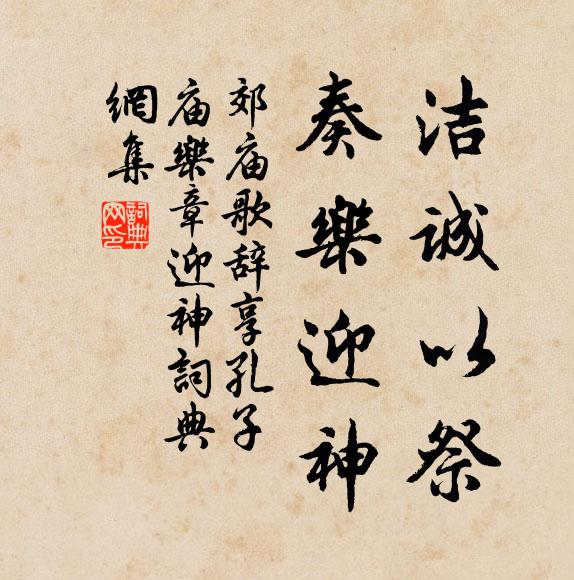 洁誠以祭
奏樂迎神
郊庙歌辞享孔子
庙樂章迎神詞典
網集
詞典
网印